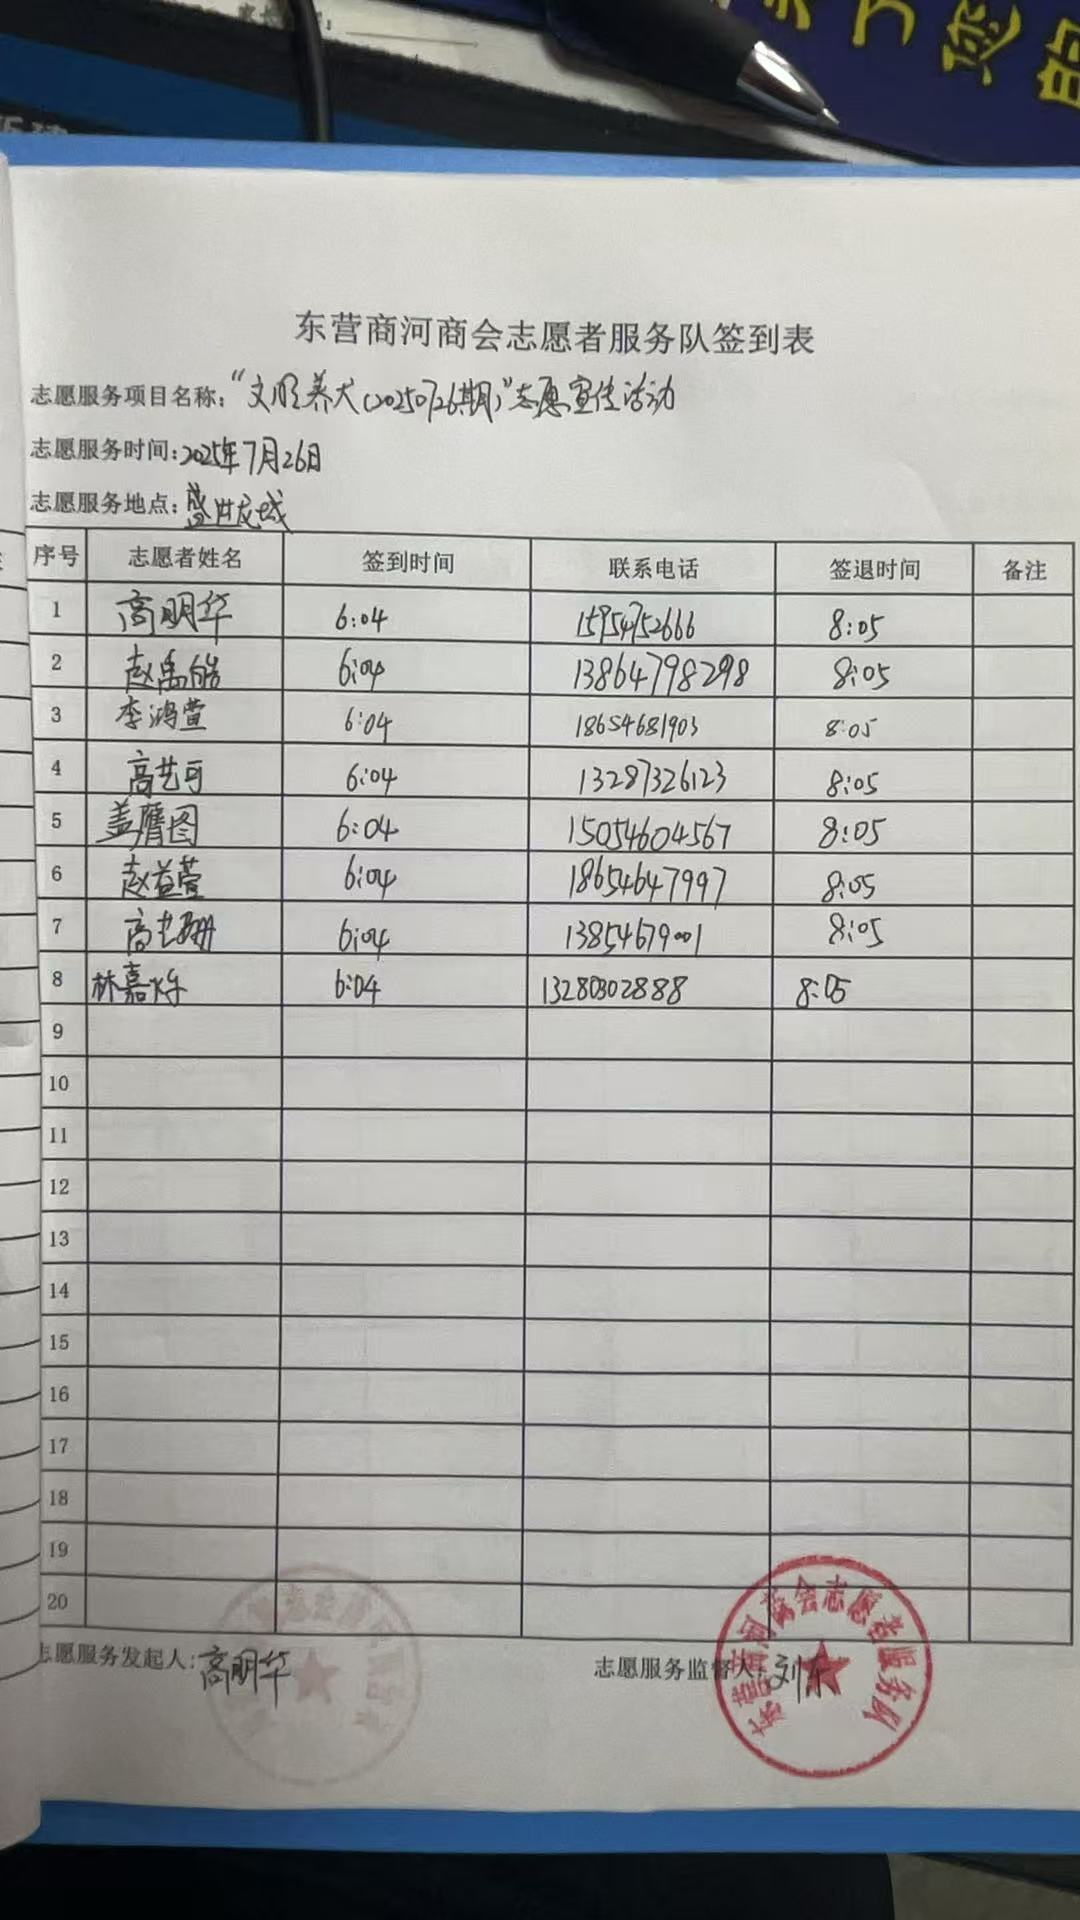 东营商河商会志愿者服务队签到表
志愿服务项目名称:“文明养犬(20250726期)”志愿宣传活动
志愿服务时间:2025年7月26日
志愿服务地点:盛世龙城
序号 志愿者姓名 签到时间 联系电话 签退时间 备注
1 高明华 6:04 15954752666 8:05
2 赵禹皓 6:04 13864798298 8:05
3 李鸿萱 6:04 18654681903 8:05
4 高艺可 6:04 13287326123 8:05
5 盖膺图 6:04 15054604567 8:05
6 赵益萱 6:04 18654647997 8:05
7 高艺珊 6:04 13854679001 8:05
8 林嘉烁 6:04 13280302888 8:05
9
10
11
12
13
14
15
16
17
18
19
20
志愿服务发起人:高明华 志愿服务监督人:刘东
东营商河商会志愿者服务队